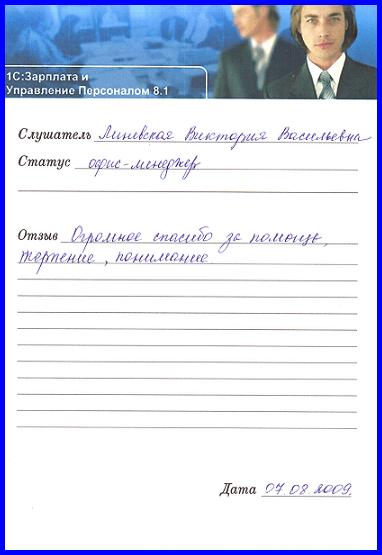 1С:Зарплата и
Управление Персоналом 8.1
Слушатель Линевская Виктория Васильевна
Статус офис-менеджер
Отзыв Огромное спасибо за помощь,
терпение, понимание.
Дата 07.08.2009.